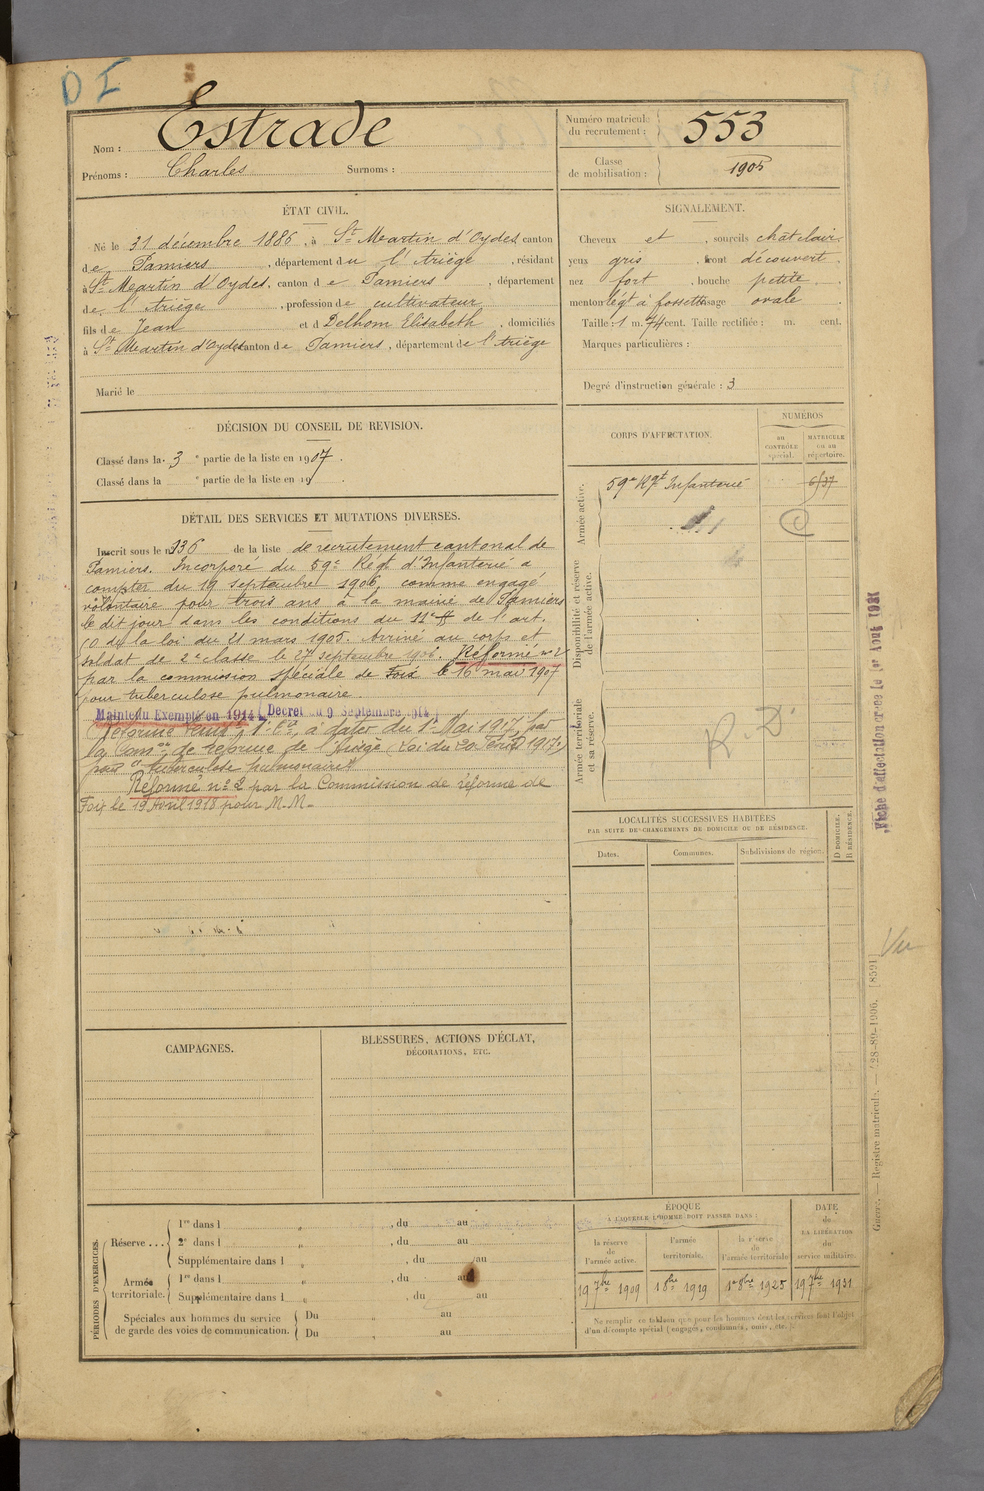 D I
Nom : Estrade
Prénoms : Charles Surnoms :
Numéro matricule du recrutement : 553
Classe de mobilisation : 1905
ÉTAT CIVIL.
Né le 31 décembre 1886, à St Martin d'Oydes canton
de Pamiers, département du l'Ariège, résidant
à St Martin d'Oydes, canton de Pamiers, département
de l'Ariège, profession de cultivateur
fils de Jean et d Delhom Elisabeth, domiciliés
à St Martin d'Oydes canton de Pamiers, département de l'Ariège
Marié le
SIGNALEMENT.
Cheveux et, sourcils chât clair
yeux gris, front découvert
nez fort, bouche petite
menton légt à fossette visage ovale
Taille : 1 m. 74 cent. Taille rectifiée : m. cent.
Marques particulières :
Degré d'instruction générale : 3
DÉCISION DU CONSEIL DE REVISION.
Classé dans la 3 e partie de la liste en 1907.
Classé dans la e partie de la liste en 19
DÉTAIL DES SERVICES ET MUTATIONS DIVERSES.
Inscrit sous le n° 136 de la liste de recrutement cantonal de
Pamiers. Incorporé du 59e Régt d'Infanterie à
compter du 19 septembre 1906, comme engagé
volontaire pour trois ans à la mairie de Pamiers
le dit jour dans les conditions du 11e § de l'art.
50 de la loi du 21 mars 1905. Arrivé au corps et
soldat de 2e classe le 27 septembre 1906. Réformé n° 2
par la commission spéciale de Foix le 16 mai 1907
pour tuberculose pulmonaire.
Maintenu Exempté en 1914 (Décret du 9 Septembre 1914)
Réformé à dater du 1er Mai 1917, par
la Comon de réforme de l'Ariège (Loi du 20 Fév 1917)
pour "tuberculose pulmonaire"
Réformé n° 2 par la Commission de réforme de
Foix le 19 Avril 1918 pour M.M.
CORPS D'AFFECTATION.
NUMÉROS
au CONTRÔLE spécial.
MATRICULE ou au répertoire.
Armée active.
59e Rgt Infanterie 6537
Disponibilité et réserve de l'armée active.
Armée territoriale et sa réserve.
R. D.
LOCALITÉS SUCCESSIVES HABITÉES
PAR SUITE DE CHANGEMENTS DE DOMICILE OU DE RÉSIDENCE.
Dates. Communes. Subdivisions de région. D DOMICILE. R RÉSIDENCE.
Fiche d'affectation créée le 1er Août 1931
Vu
Guerre. — Registre matricule. — 428-89-1906. [8591]
CAMPAGNES.
BLESSURES, ACTIONS D'ÉCLAT,
DÉCORATIONS, ETC.
PÉRIODES D'EXERCICES.
Réserve ...
1re dans l , du au
2e dans l , du au
Supplémentaire dans l , du au
Armée territoriale.
1re dans l , du au
Supplémentaire dans l , du au
Spéciales aux hommes du service
de garde des voies de communication.
Du au
Du au
ÉPOQUE
A LAQUELLE L'HOMME DOIT PASSER DANS :
la réserve de l'armée active.
l'armée territoriale.
la réserve de l'armée territoriale
DATE de LA LIBÉRATION du service militaire.
19 7bre 1909
1 8bre 1919
1er 8bre 1925
19 7bre 1931
Ne remplir ce tableau que pour les hommes dont les services font l'objet
d'un décompte spécial (engagés, condamnés, omis, etc.)